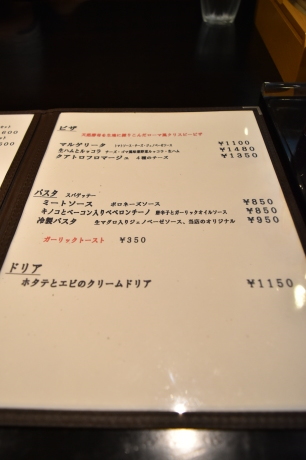 ピザ
天然酵母を生地に練りこんだローマ風クリスピーピザ
マルゲリータ ¥1100
生ハムとルッコラ ¥1480
クアトロフロマージュ 4種のチーズ ¥1350
パスタ スパゲッティー
ミートソース ボロネーズソース ¥850
キノコとベーコン入りペペロンチーノ 唐辛子とガーリックオイルソース ¥850
冷製パスタ 生マグロ入りジェノベーゼソース、当店のオリジナル ¥950
ガーリックトースト ¥350
ドリア
ホタテとエビのクリームドリア ¥1150